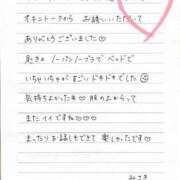 オキニトークから お誘いいただいて
ありがとうございました♡
起きぬ ノーパンノーブラで ベッドで
いちゃいちゃが すごいドキドキでした
気持ちよかった♡ 服の上からって
また イイですね♡♡
まったりお話しもできて 楽しかったです♡
みさき